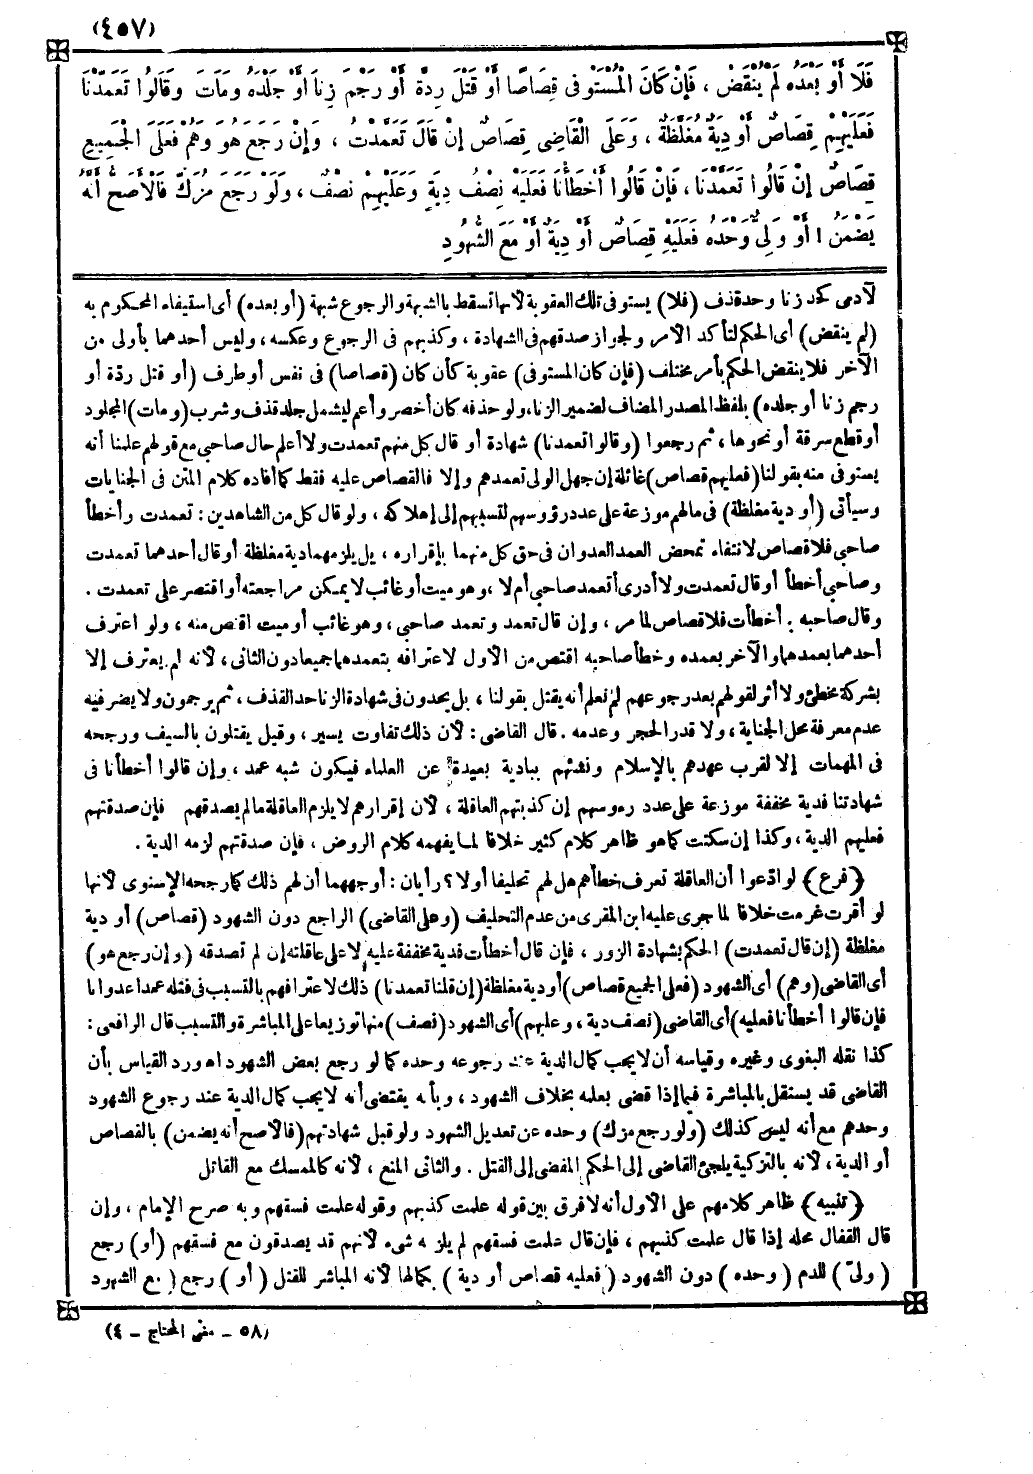 (٤٥٧)
فَلَا أَوْ بَعْدَهُ لَمْ يُنْقَضْ ، فَإِنْ كَانَ الْمُسْتَوْفَى قِصَاصًا أَوْ قَتْلَ رِدَّةٍ أَوْ رَجْمَ زِنًا أَوْ جَلْدَهُ وَمَاتَ وَقَالُوا تَعَمَّدْنَا
فَعَلَيْهِمْ قِصَاصٌ أَوْ دِيَةٌ مُغَلَّظَةٌ ، وَعَلَى الْقَاضِي قِصَاصٌ إِنْ قَالَ تَعَمَّدْتُ ، وَإِنْ رَجَعَ هُوَ وَهُمْ فَعَلَى الْجَمِيعِ
قِصَاصٌ إِنْ قَالُوا تَعَمَّدْنَا ، فَإِنْ قَالُوا أَخْطَأْنَا فَعَلَيْهِ نِصْفُ دِيَةٍ وَعَلَيْهِمْ نِصْفٌ ، وَلَوْ رَجَعَ مُزَكٍّ فَالْأَصَحُّ أَنَّهُ
يَضْمَنُ ! أَوْ وَلِيٌّ وَحْدَهُ فَعَلَيْهِ قِصَاصٌ أَوْ دِيَةٌ أَوْ مَعَ الشُّهُودِ
لآدمى كحد زنا وحد قذف (فلا) يستوفى تلك العقوبة لأنها تسقط بالشبهة والرجوع شبهة (أو بعده) أى استيفاء المحكوم به
(لم ينقض) أى الحكم لتأكد الأمر ولجواز صدقهم فى الشهادة ، وكذبهم فى الرجوع وعكسه ، وليس أحدهما بأولى من
الآخر فلا ينقض الحكم بأمر مختلف (فإن كان المستوفى) عقوبة كأن كان (قصاصا) فى نفس أو طرف (أو قتل ردّة أو
رجم زنا أو جلده) بلفظ المصدر المضاف لضمير الزنا ، ولو حذفه كان أخصر وأعم ليشمل جلد قذف وشرب (ومات) المجلود
أو قطع سرقة أو نحوها ، ثم رجعوا (وقالوا تعمدنا) شهادة أو قال كل منهم تعمدت ولا أعلم حال صاحبى مع قولهم علمنا أنه
يستوفى منه بقولنا (فعليهم قصاص) غائلة إن جهل الولى تعمدهم وإلا فالقصاص عليه فقط كما أفاده كلام المتن فى الجنايات
وسيأتى (أو دية مغلظة) فى مالهم موزعة على عدد رؤوسهم لتسببهم إلى إهلاكه ، ولو قال كل من الشاهدين : تعمدت وأخطأ
صاحبى فلا قصاص لانتفاء تمحض العمد العدوان فى حق كل منهما بإقراره ، بل يلزمهما دية مغلظة أو قال أحدهما تعمدت
وصاحبى أخطأ أو قال تعمدت ولا أدرى أتعمد صاحبى أم لا ، وهو ميت أو غائب لا يمكن مراجعته أو اقتصر على تعمدت .
وقال صاحبه . أخطأت فلا قصاص لما مر ، وإن قال تعمد وتعمد صاحبى ، وهو غائب أو ميت اقتص منه ، ولو اعترف
أحدهما بعمدهما والآخر بعمده وخطأ صاحبه اقتص من الأول لاعترافه بتعمدهما جميعا دون الثانى ، لأنه لم يعترف إلا
بشركة مخطئ ولا أثر لقولهم بعد رجوعهم لم نعلم أنه يقتل بقولنا ، بل يحدون فى شهادة الزنا حد القذف ، ثم يرجمون ولا يضر فيه
عدم معرفة محل الجناية ، ولا قدر الحجر وعدمه . قال القاضى : لأن ذلك تفاوت يسير ، وقيل يقتلون بالسيف ورجحه
فى المهمات إلا لقرب عهدهم بالإسلام ونشئهم ببادية بعيدة عن العلماء فيكون شبه عمد ، وإن قالوا أخطأنا فى
شهادتنا فدية مخففة موزعة على عدد رءوسهم إن كذبتهم العاقلة ، لأن إقرارهم لا يلزم العاقلة مالم يصدقهم فإن صدقتهم
فعليهم الدية ، وكذا إن سكتت كما هو ظاهر كلام كثير خلافا لما يفهمه كلام الروض ، فإن صدقتهم لزمه الدية .
(فرع) لو ادّعوا أن العاقلة تعرف خطأهم هل لهم تحليفها أولا ؟ رأيان : أوجههما أن لهم ذلك كما رجحه الإسنوى لأنها
لو أقرت غرمت خلافا لما جرى عليه ابن المقرى من عدم التحليف (وعلى القاضى) الراجع دون الشهود (قصاص) أو دية
مغلظة (إن قال تعمدت) الحكم بشهادة الزور ، فإن قال أخطأت فدية مخففة عليه لا على عاقلته إن لم تصدقه (وإن رجع هو)
أى القاضى (وهم) أى الشهود (فعلى الجميع قصاص) أو دية مغلظة (إن قلنا تعمدنا) ذلك لاعترافهم بالتسبب فى قتله عمدا عدوانا
فإن قالوا أخطأنا فعليه) أى القاضى (نصف دية ، وعليهم) أى الشهود (نصف) منها توزيعا على المباشرة والتسبب قال الرافعى :
كذا نقله البغوى وغيره وقياسه أن لا يجب كمال الدية عند رجوعه وحده كما لو رجع بعض الشهود اه ورد القياس بأن
القاضى قد يستقل بالمباشرة فيما إذا قضى بعلمه بخلاف الشهود ، وبأنه يقتضى أنه لا يجب كمال الدية عند رجوع الشهود
وحدهم مع أنه ليس كذلك (ولو رجع مزك) وحده عن تعديل الشهود ولو قبل شهادتهم (فالأصح أنه يضمن) بالقصاص
أو الدية ، لأنه بالتزكية يلجئ القاضى إلى الحكم المفضى إلى القتل . والثانى المنع ، لأنه كالممسك مع القاتل
(تنبيه) ظاهر كلامهم على الأول أنه لا فرق بين قوله علمت كذبهم وقوله علمت فسقهم وبه صرح الإمام ، وإن
قال القفال محله إذا قال علمت كذبهم ، فإن قال علمت فسقهم لم يلزمه شىء لأنهم قد يصدقون مع فسقهم (أو) رجع
(ولىّ) للدم (وحده) دون الشهود (فعليه قصاص أو دية) بكمالها لأنه المباشر للقتل (أو) رجع (مع الشهود
(٥٨ – مغنى المحتاج – ٤)